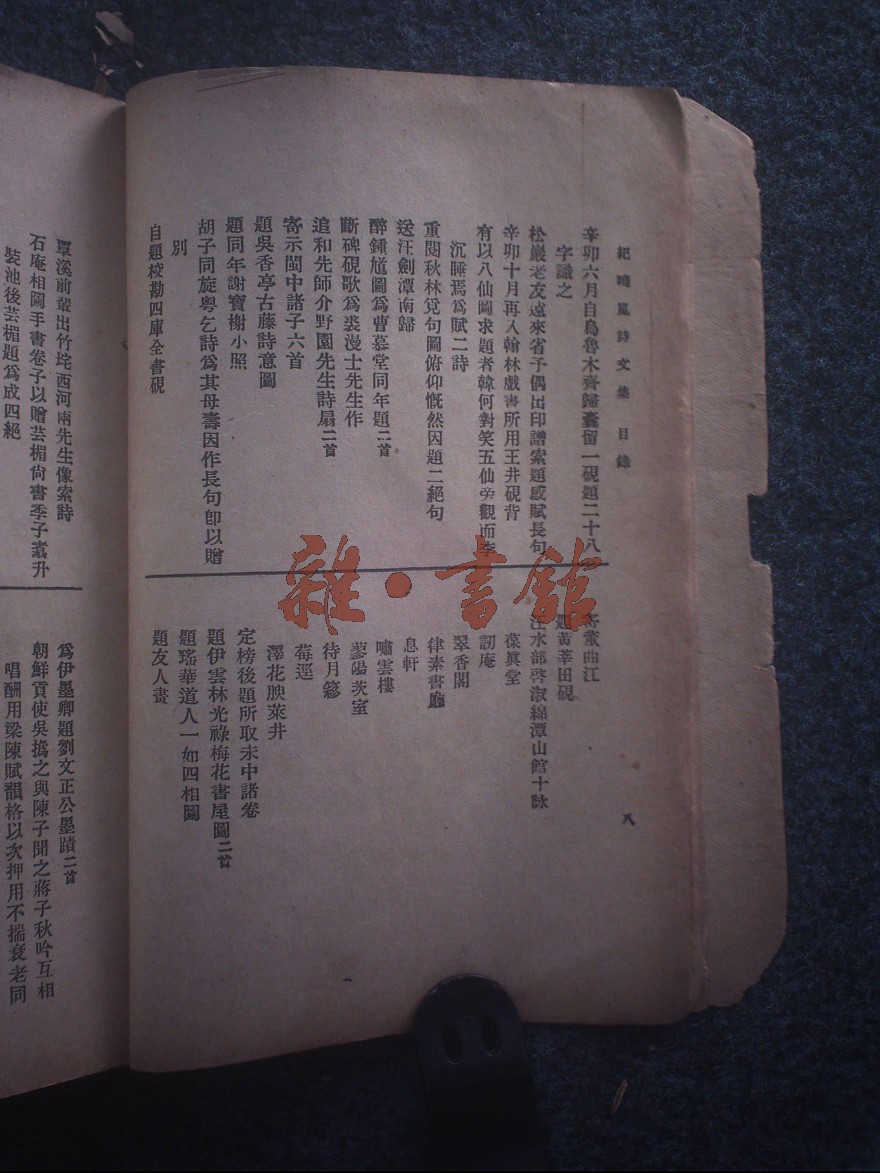 紀曉嵐詩文集 目錄
八
辛卯六月自烏魯木齊歸囊留一硯題二十八
字識之
松巖老友遠來省予偶出印譜索題感賦長句
辛卯十月再入翰林戲書所用玉井硯背
有以八仙圖求題者韓何對笑五仙旁觀而李
沉睡焉爲賦二詩
重閱秋林覓句圖俯仰慨然因題二絕句
送汪劍潭南歸
醉鍾馗圖爲曹慕堂同年題二首
斷碑硯歌爲裘漫士先生作
追和先師介野園先生詩扇二首
寄示閩中諸子六首
題吳香亭古藤詩意圖
題同年謝寶樹小照
胡子同旋粤乞詩爲其母壽因作長句卽以贈
別
自題校勘四庫全書硯
寄董曲江
題黃莘田硯
汪水部啓淑綿潭山館十詠
葆眞堂
訒庵
翠香閣
律素書廳
息軒
嘯雲樓
蓼陽茨室
待月簃
莓逕
澤花腴萊井
定榜後題所取未中諸卷
題伊雲林光祿梅花書屋圖二首
題瑤華道人一如四相圖
題友人畫
覃溪前輩出竹垞西河兩先生像索詩
石庵相國手書卷子以贈芸楣尙書季子嘉升
裝池後芸楣題爲成四絕
爲伊墨卿題劉文正公墨蹟二首
朝鮮貢使吳撝之與陳子聞之蔣子秋吟互相
唱酬用梁陳賦韻格以次押用不揣衰老同
雜·書館